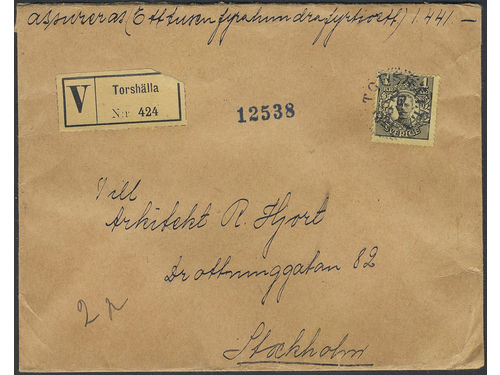 assureras (Ettusenfyrahundrafyrtioett) 1.441.—
V
Torshälla
N:r 424
12538
1
SVERIGE
Till
Arkitekt R. Hjort
Drottninggatan 82
Stockholm